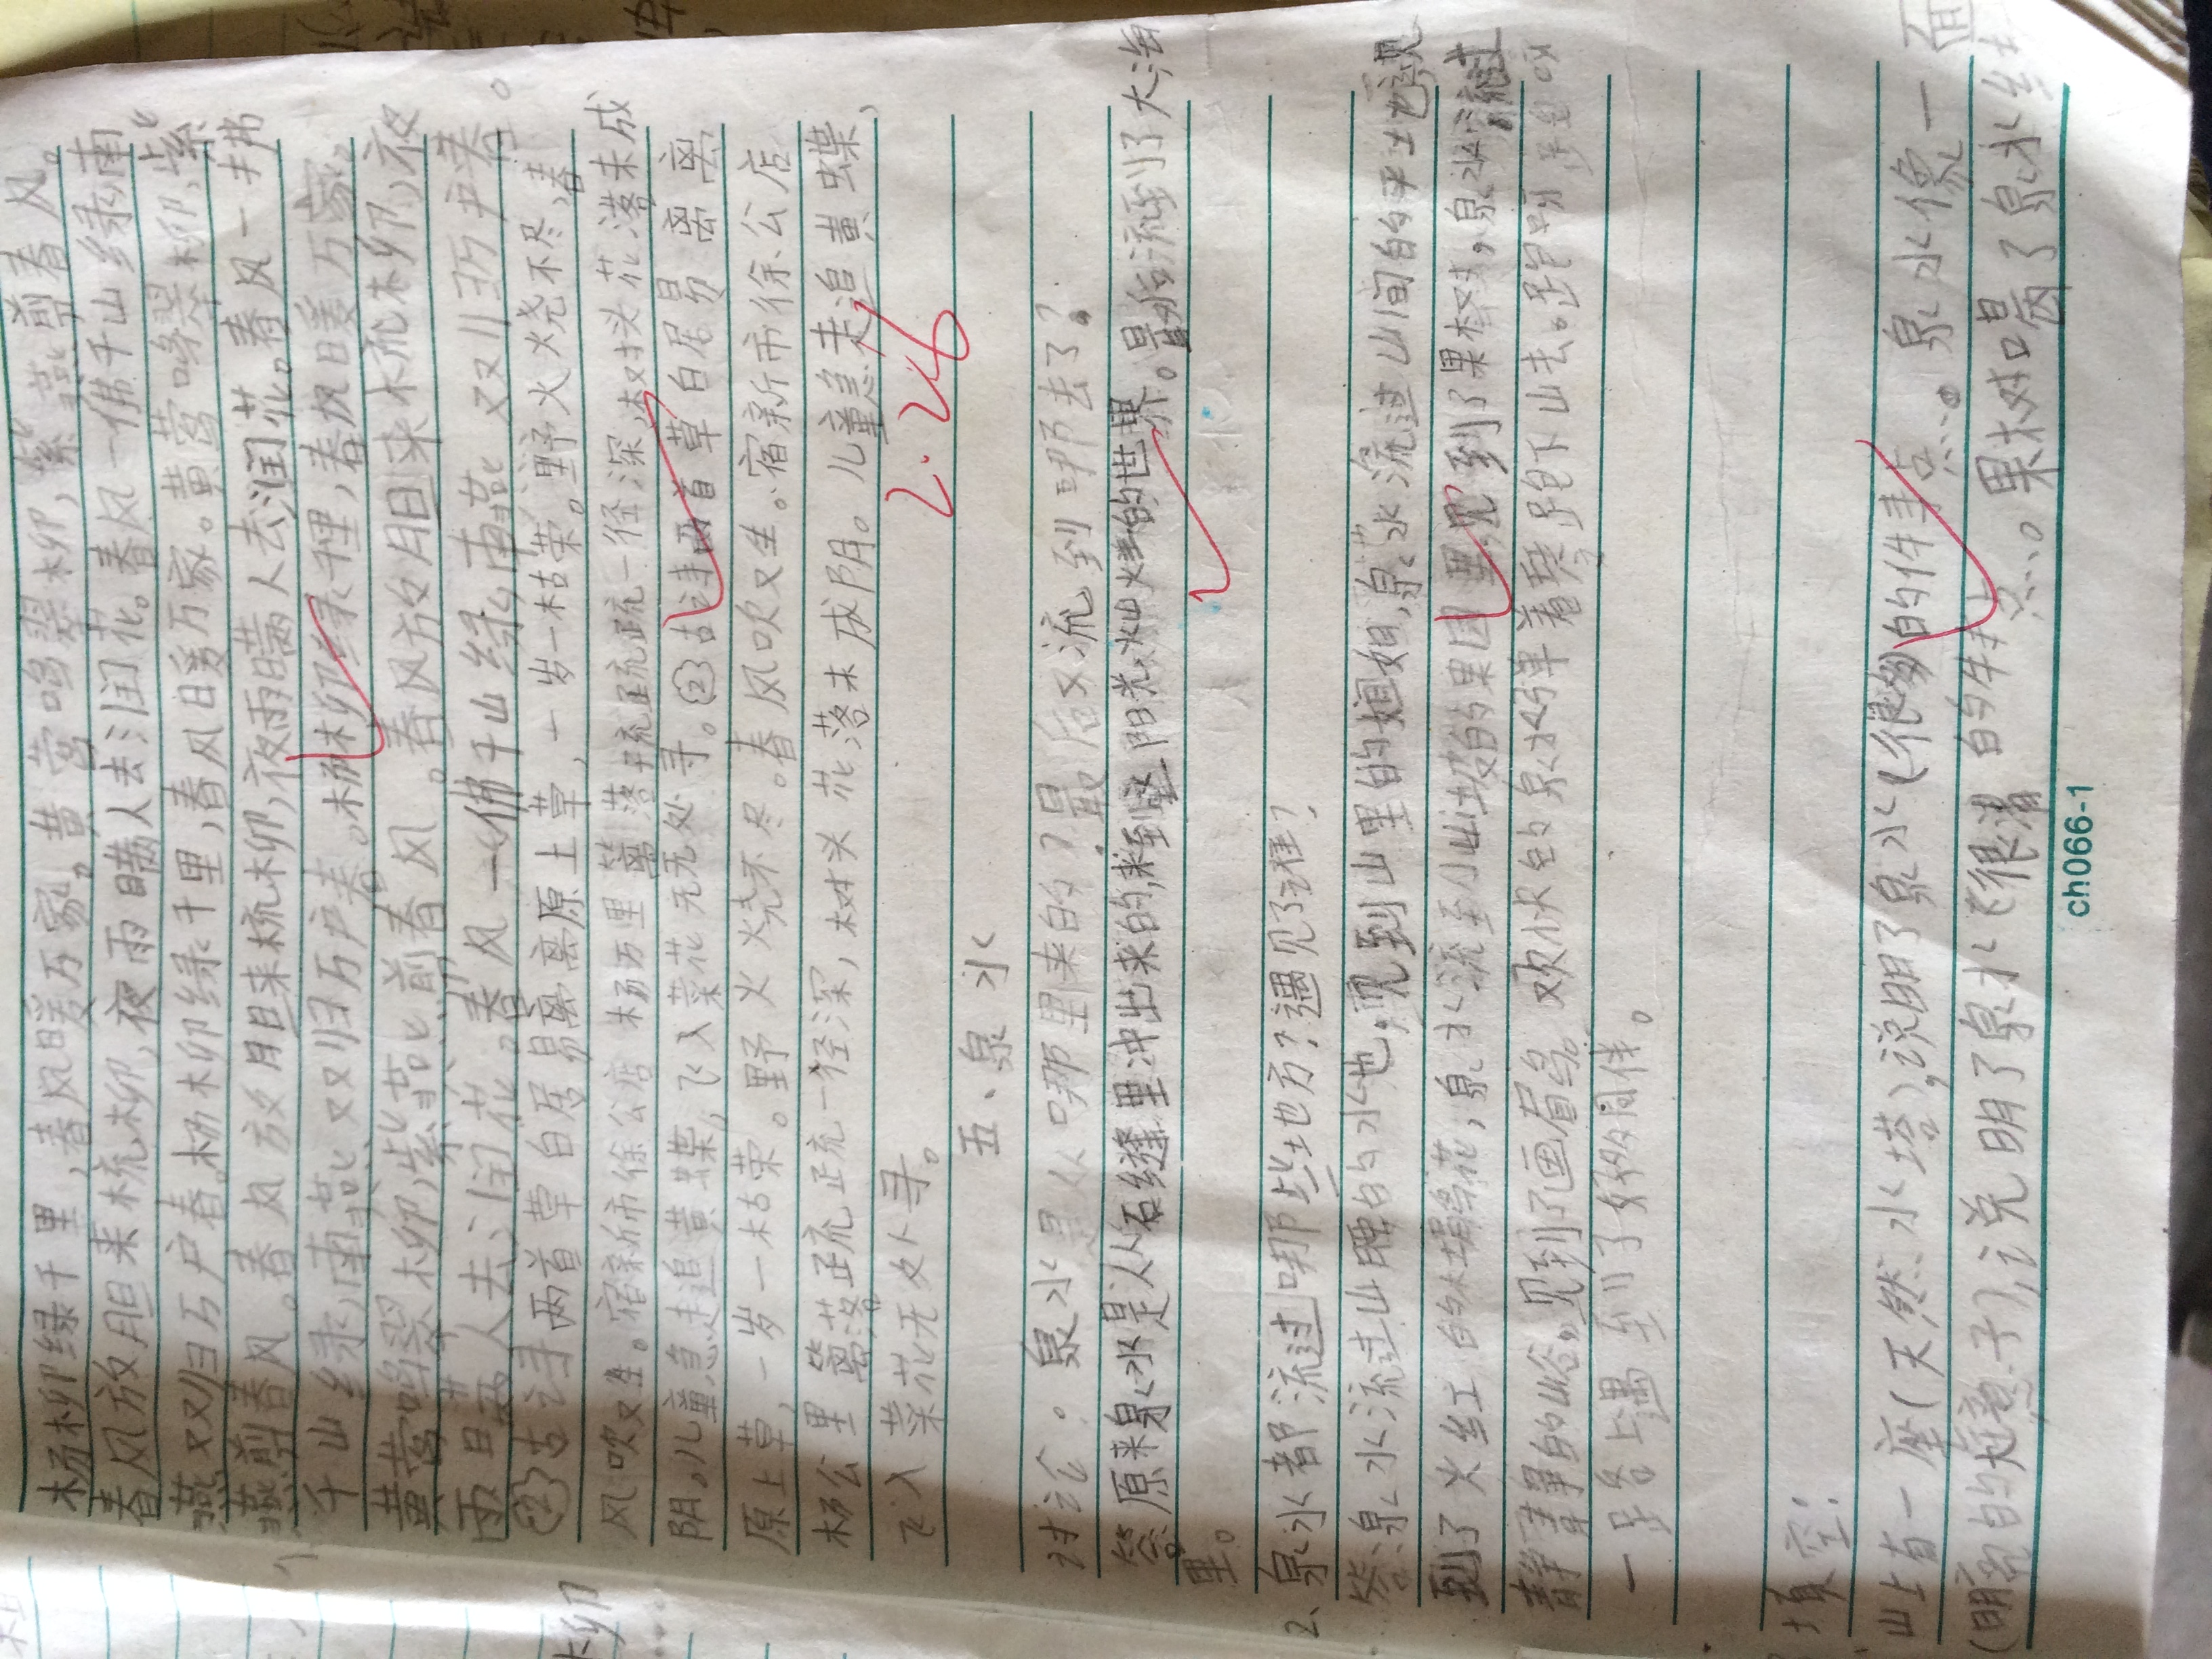 杨柳绿千里，春风暖万家。黄莺鸣翠柳，紫燕剪春风。
春风放胆来梳柳，夜雨瞒人去润花。春风一佛千山绿，南
燕又归万户春。杨柳绿千里，春风日暖万家。黄莺鸣翠柳，紫
燕剪春风。春风放胆来梳柳，夜雨瞒人去润花。春风一拂
千山绿，南燕又归万户春。杨柳绿千里，春风日暖万家。
黄莺鸣翠柳，紫燕剪春风。春风放胆来梳柳，夜
雨瞒人去润花。春风一佛千山绿，南燕又归万户春。
②古诗两首 草 白居易 离离原上草，一岁一枯荣。野火烧不尽，春
风吹又生。宿新市徐公店 杨万里 篱落疏疏一径深，树头花落未成
阴。儿童急走追黄蝶，飞入菜花无处寻。②古诗两首 草 白居易 离离
原上草，一岁一枯荣。野火烧不尽。春风吹又生。宿新市徐公店
杨万里 篱落疏疏一径深，树头花落未成阴。儿童急走追黄蝶，
飞入菜花无处寻。
2.26
五、泉水
讨论。泉水是从哪里来的？最后又流到哪去了？
答。原来泉水是从石缝里冲出来的，来到 阳光 的世界。最后流到了大海
里。
2、泉水都流过哪些地方？遇见了谁？
答：泉水流过山腰的水池，见到山里的姐姐，泉水流过山间的平地
到了火红的杜鹃花，泉水流至山坡的果园里，见到了果树，泉水流过
静静的山谷，见到了画眉鸟。欢快的泉水
一路上遇到了好多同伴。
填空：
山上有一座（天然水塔），说明了泉水（很多）的特点……。泉水像一面
（明亮的镜子），说明了泉水（很清 的特点……。果树喝了泉水
ch066-1